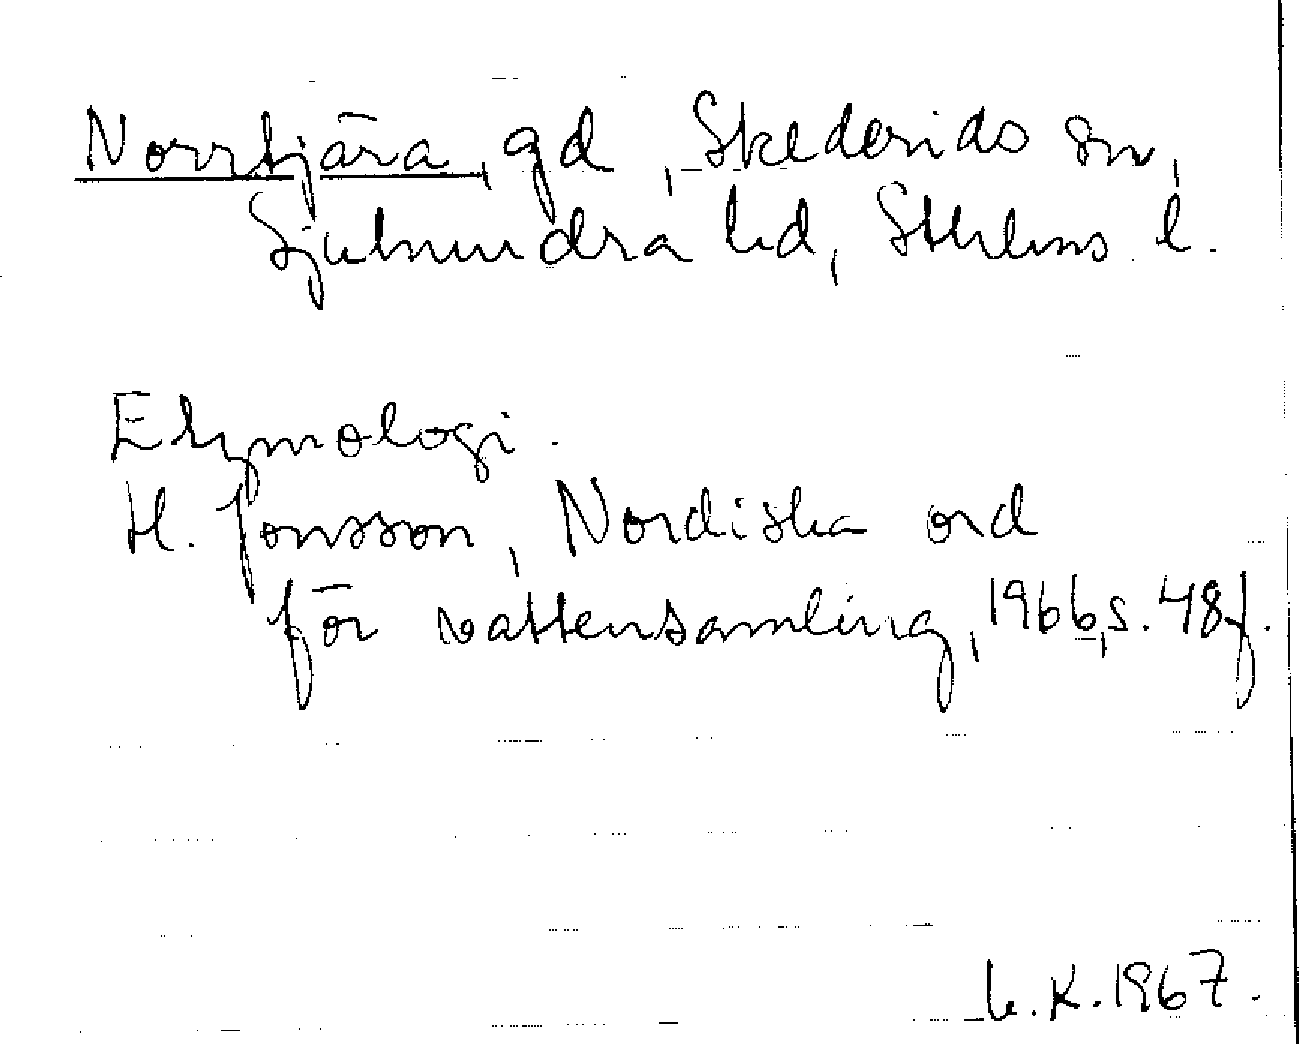 Norrtjära, gd, Skederids sn,
Sjuhundra hd, Sthlms l.
Etymologi.
H. Jonsson, Nordiska ord
för vattensamling, 1966, s. 48f.
K. 1967.